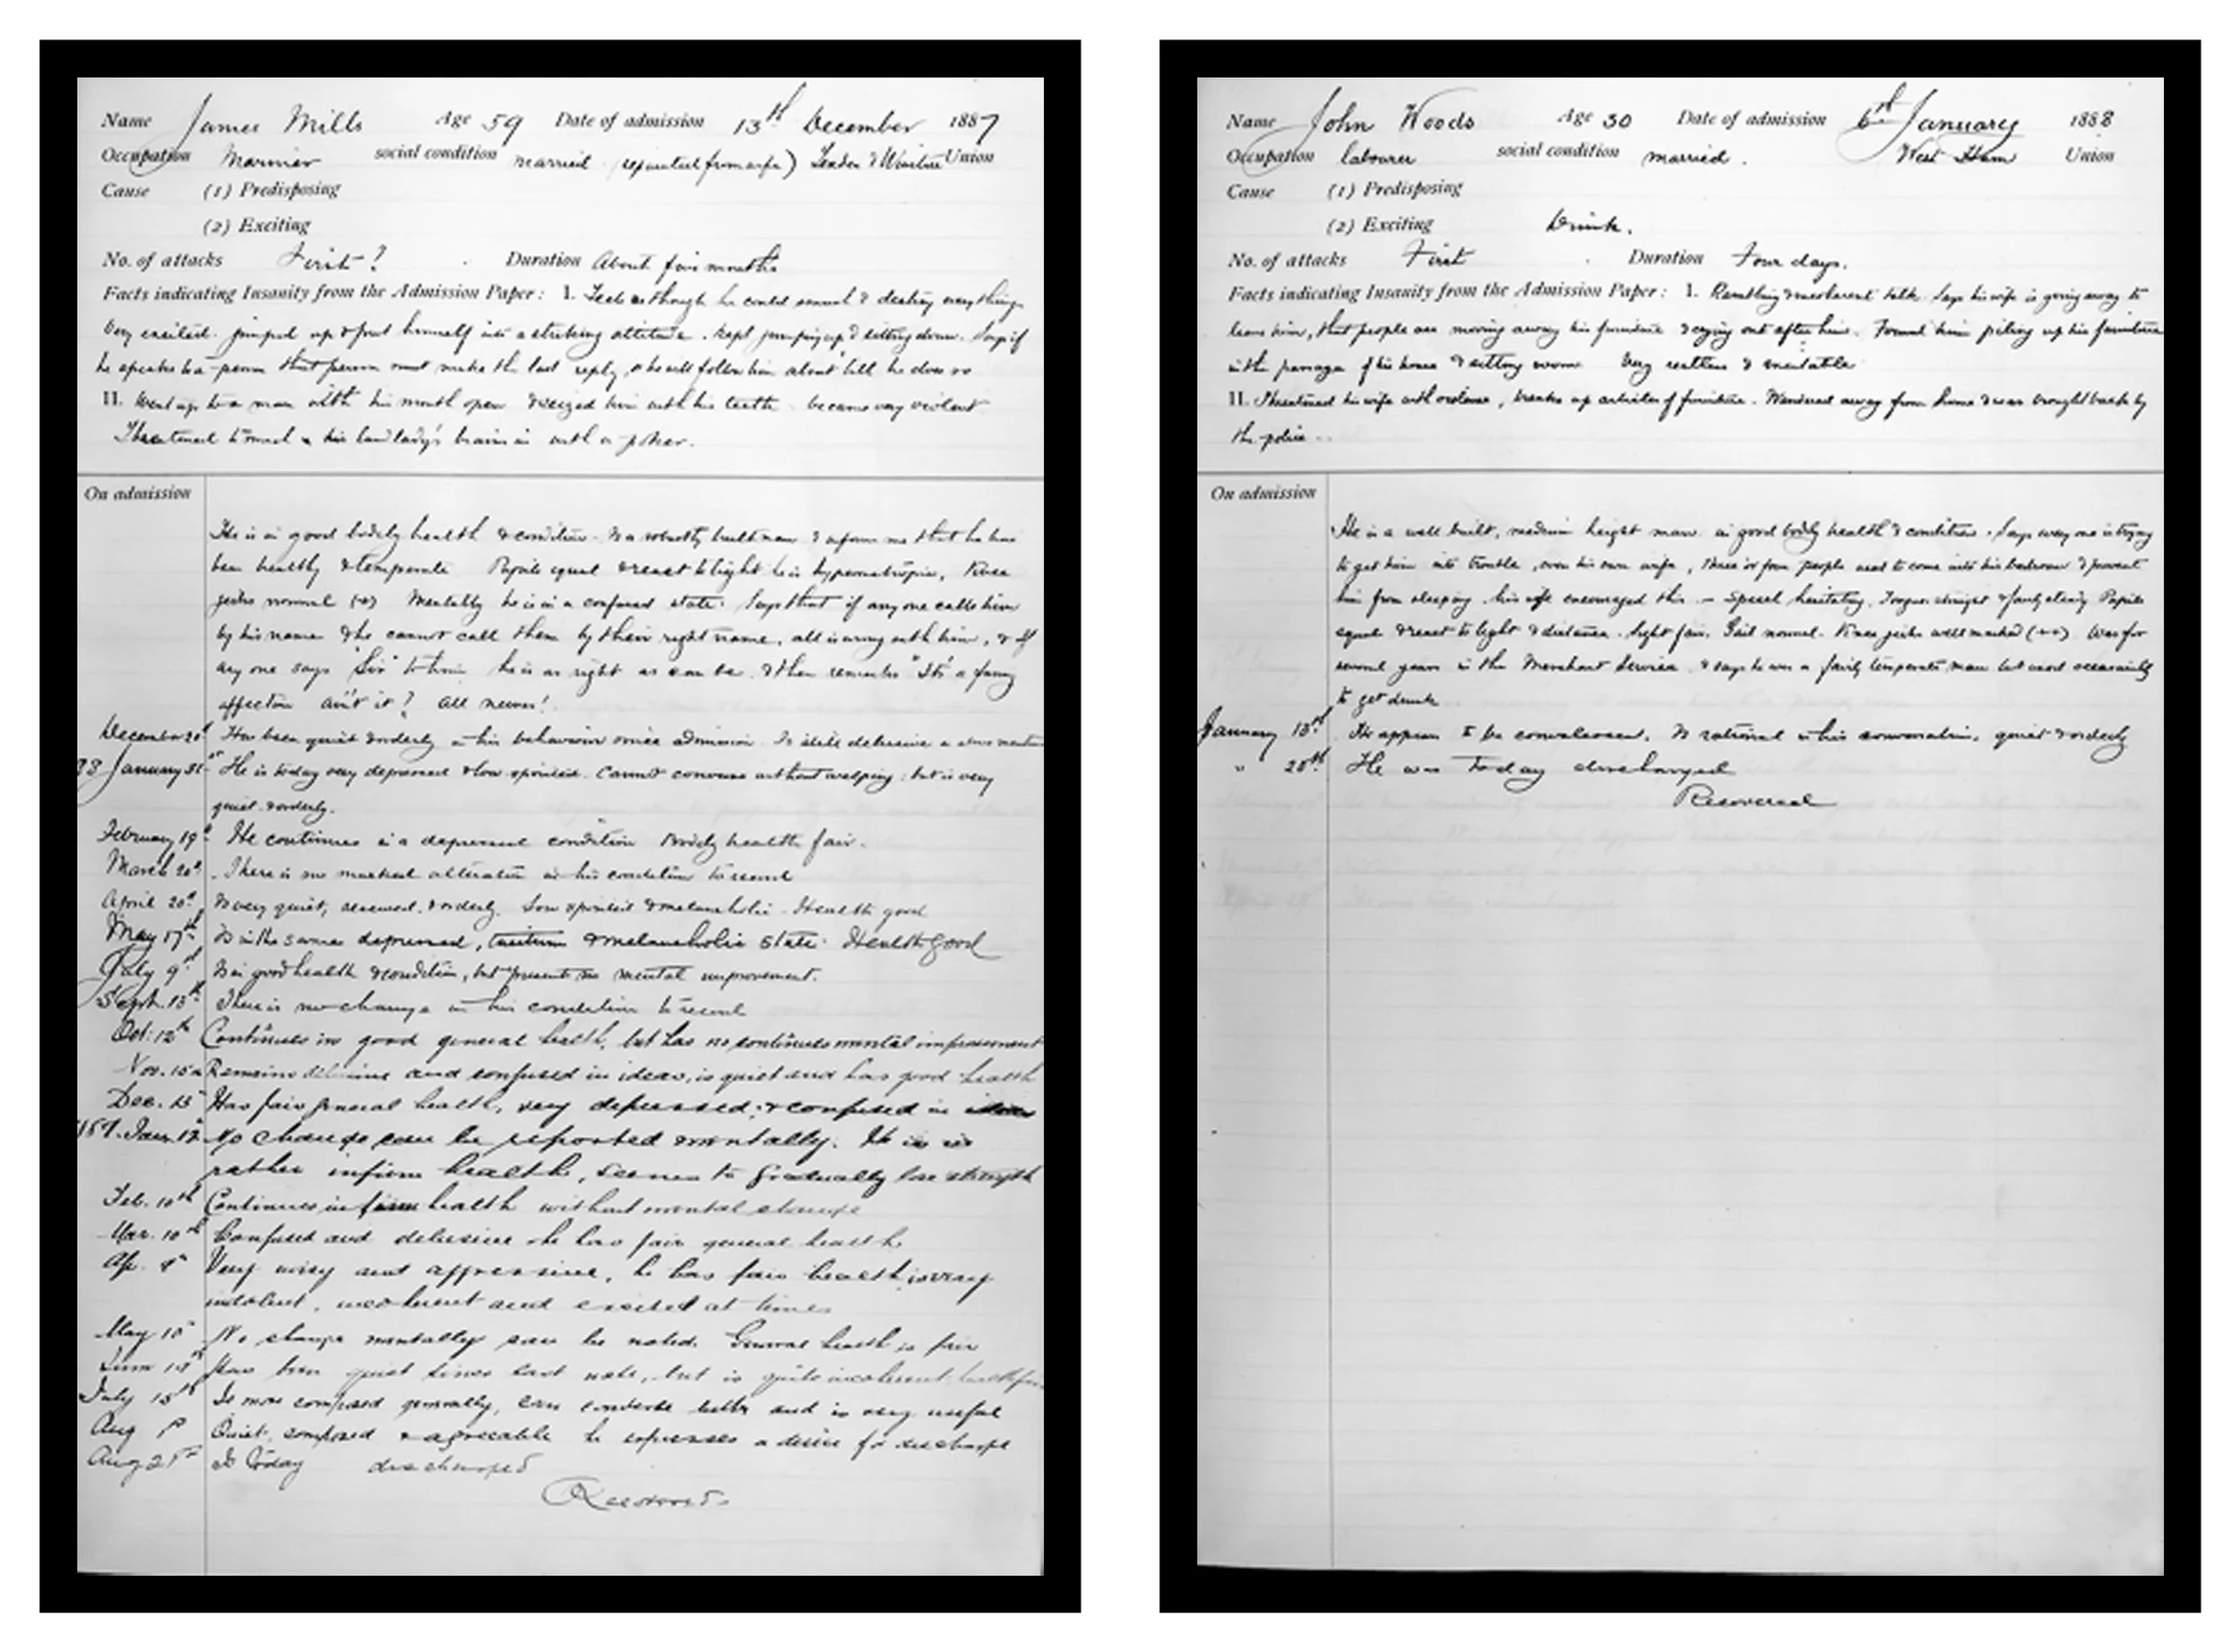 Name James Mills Age 59 Date of admission 13th December 1887
Occupation Marinier social condition married (separated from wife) Lexden & Winstree Union
Cause (1) Predisposing
(2) Exciting
No. of attacks First? Duration About five months
Facts indicating Insanity from the Admission Paper: I. Feels as though he could smash & destroy everything
Very excited. jumped up & put himself into a striking attitude. Kept jumping up & sitting down. Says if
he speaks to a person that person must make the last reply, & he will follow him about till he does so
II. Went up to a man with his mouth open & seized him with his teeth. became very violent
Threatened to smash his landlady's brains in with a poker.
On admission
He is in good bodily health & condition. Is a robustly built man & informs me that he has
been healthy & temperate Pupils equal & react to light he is hypermetropic, Knee
jerks normal (+) Mentally he is in a confused state. Says that if any one calls him
by his name & he cannot call them by their right name, all is wrong with him, & if
any one says "Sir" to him he is as right as can be. & then remarks "Its a funny
affection ain't it? all nerves!
December 20th Has been quiet & orderly in his behaviour since admission. Is still delusive
88 January 31st He is today very depressed & low spirited. Cannot converse without weeping: but is very
quiet & orderly.
February 19th He continues in a depressed condition Bodily health fair.
March 20th There is no marked alteration in his condition to record
April 20th Is very quiet, reserved, & orderly. Low spirited & melancholic. Health good
May 17th Is in the same depressed, taciturn & melancholic state. Health good
July 9th Is in good health & condition, but presents no mental improvement.
Sept. 13th There is no change in his condition to record
Oct. 12th Continues in good general health, but has no continues mental improvement
Nov. 15th Remains delusive and confused in ideas, is quiet and has good health
Dec. 13 Has fair general health, very depressed & confused in ideas
Jan. 12 No change can be reported mentally. He is in
rather infirm health, seems to gradually lose strength
Feb. 10th Continues infirm health without mental change
Mar. 10th Confused and delusive he has fair general health
Ap. 9th Very noisy and aggressive, he has fair health, is very
indolent, incoherent and excited at times
May 10th No change mentally can be noted. General health is fair
June 14th Has been quiet since last note, but is quite incoherent, health fair
July 15th Is more composed generally, can converse better and is very useful
Aug Quiet, composed & agreeable he expresses a desire for discharge
Aug 21st Is Today discharged
Recovered
Name John Woods Age 30 Date of admission 6th January 1888
Occupation labourer social condition married. West Ham Union
Cause (1) Predisposing
(2) Exciting Drink.
No. of attacks First Duration Four days.
Facts indicating Insanity from the Admission Paper: I. Rambling & incoherent talk. Says his wife is going away to
leave him, that people are moving away his furniture & crying out after him. Found him piling up his furniture
in the passage of his house & sitting room Very restless & excitable
II. Threatened his wife with violence, breaks up articles of furniture. Wandered away from home & was brought back by
the police.
On admission
He is a well built, medium height man. in good bodily health & condition. Says every one is trying
to get him into trouble, even his own wife, three or four people used to come into his bedroom & prevent
him from sleeping. his wife encouraged this. Speech hesitating. Tongue straight & fairly steady Pupils
equal & react to light & distance. Sight fair. Gait normal. Knee jerks well marked (++) Was for
several years in the Merchant Service & says he was a fairly temperate man but used occasionally
to get drunk
January 13th He appears to be convalescent. Is rational in his conversation, quiet & orderly
" 20th He was Today discharged
Recovered